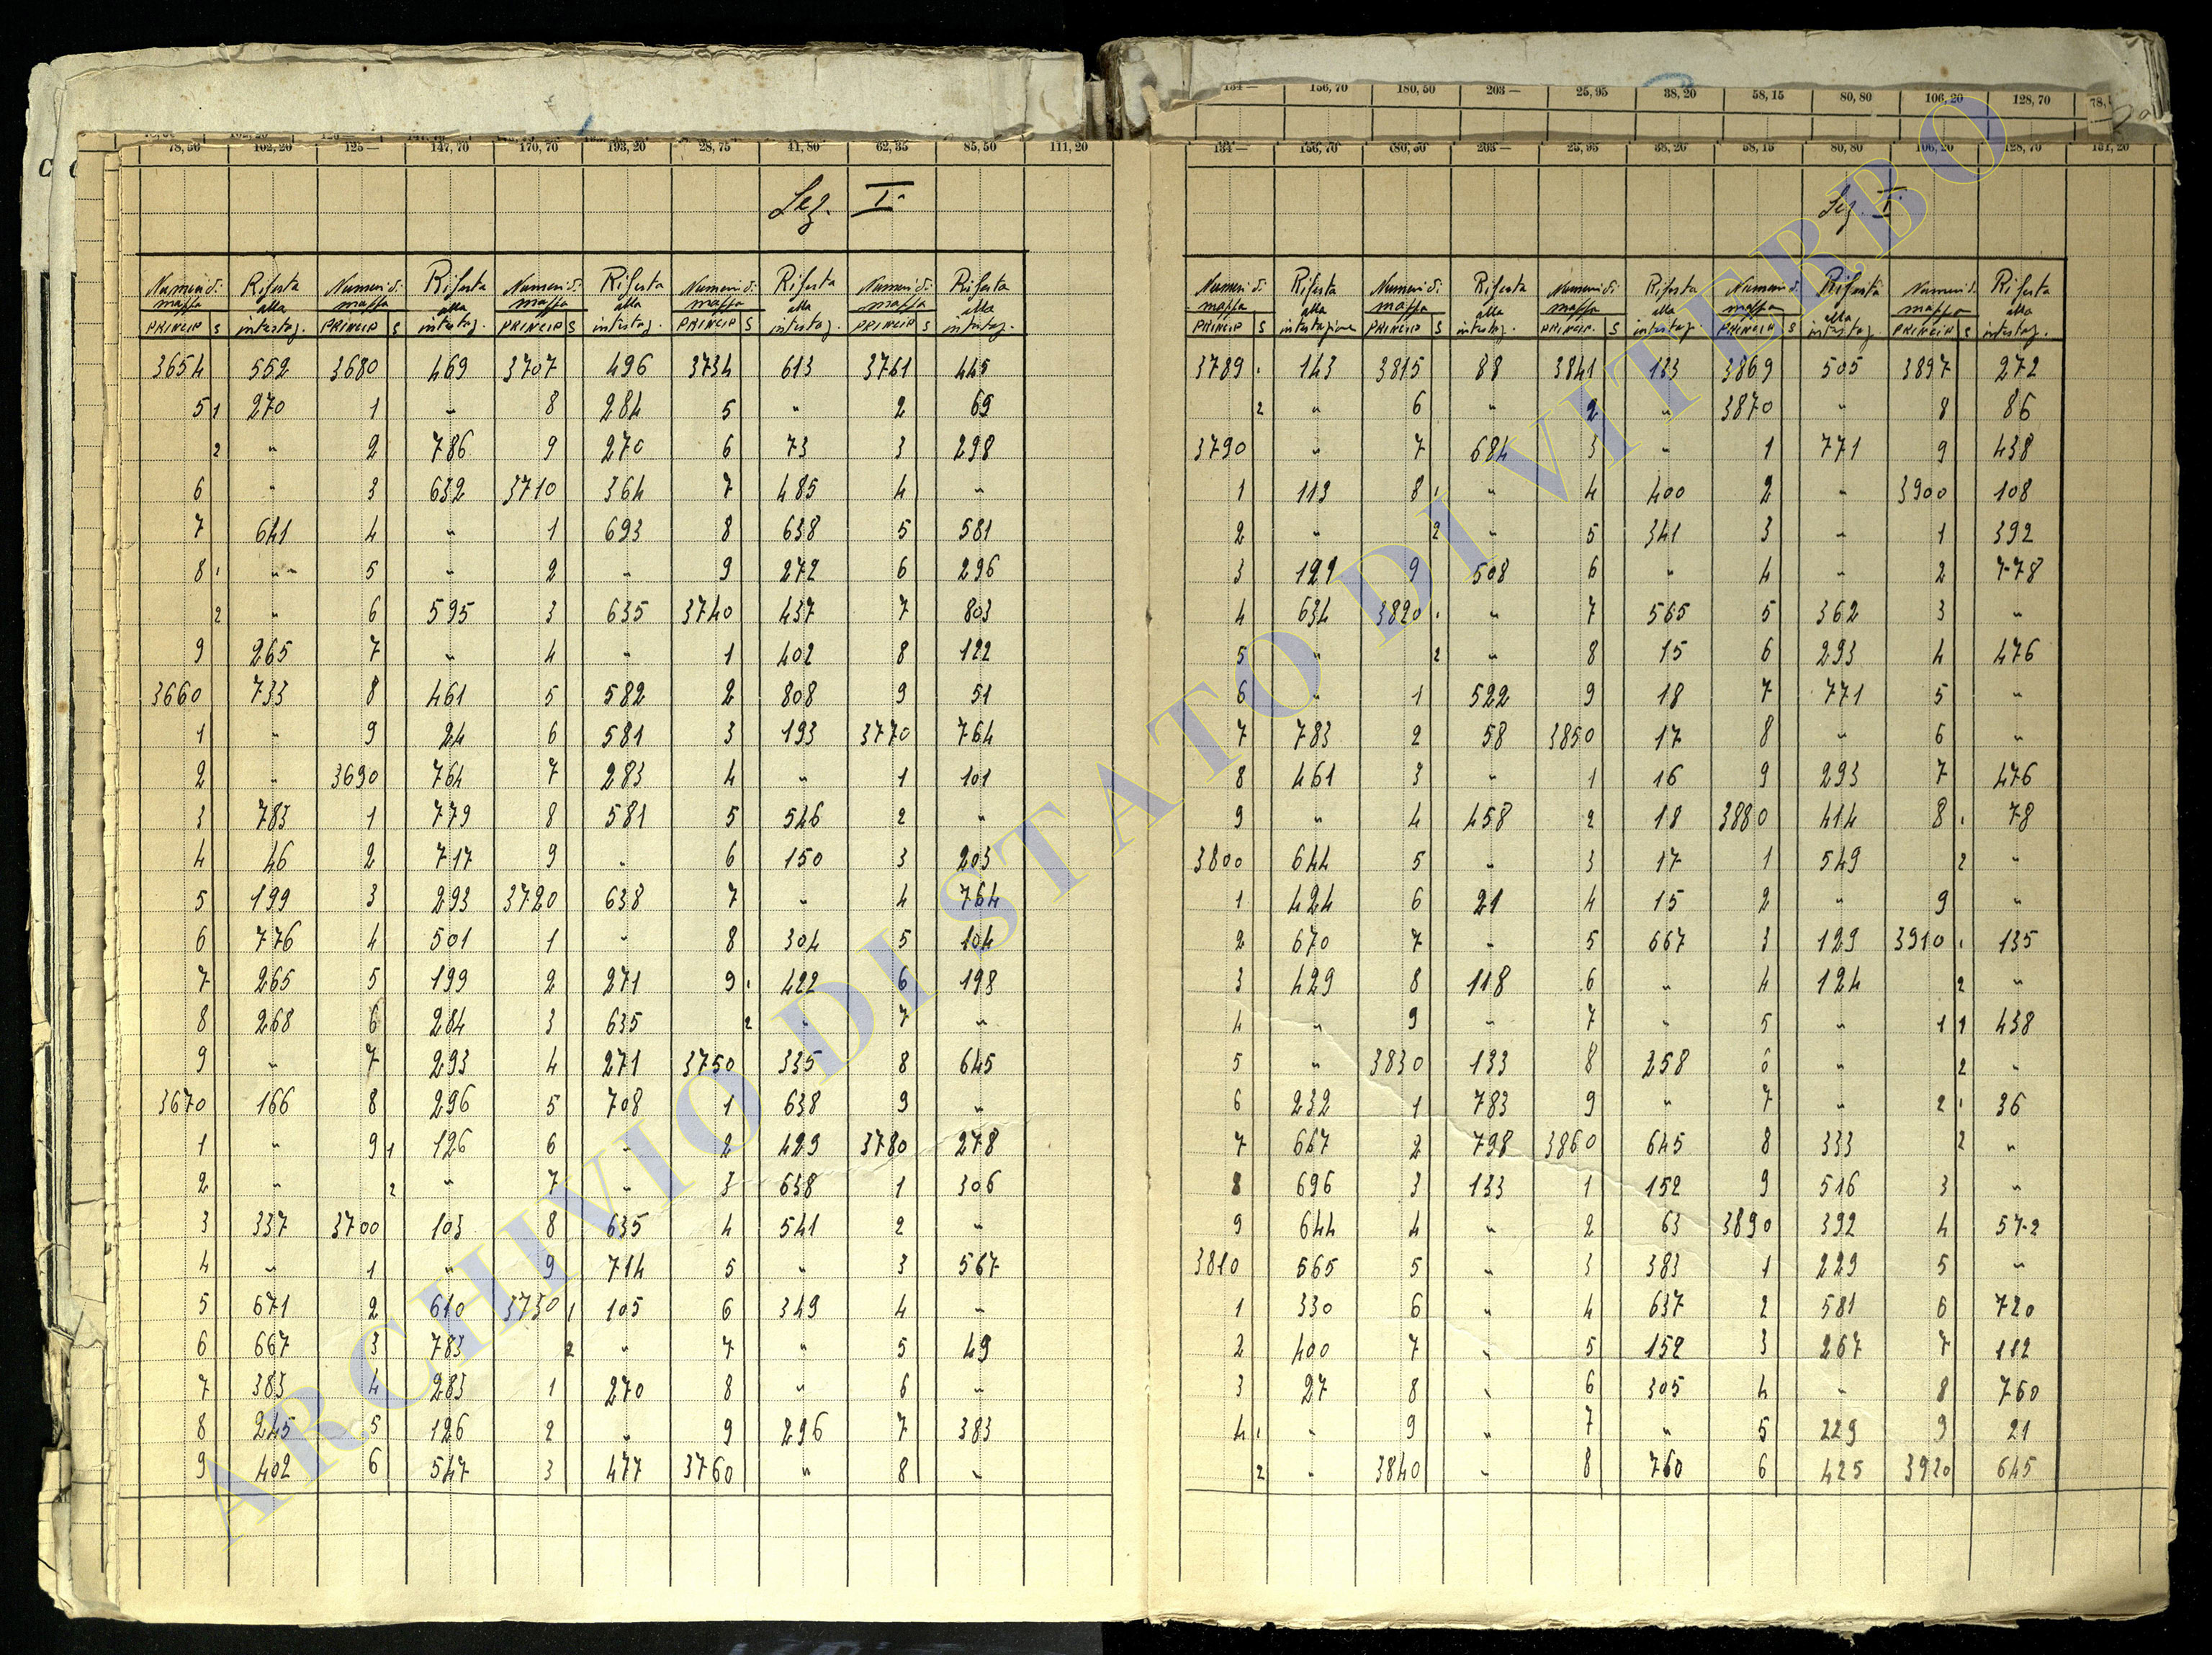 134 — 156,70 180,50 203 — 25,95 38,20 58,15 80,80 106,20 128,70 78,
78,50 102,20 125 — 147,70 170,70 193,20 28,75 41,80 62,35 85,50 111,20
Sez. Iª
Numeri di mappa Riferta alla intestaz. Numeri di mappa Riferta alla intestaz. Numeri di mappa Riferta alla intestaz. Numeri di mappa Riferta alla intestaz. Numeri di mappa Riferta alla intestaz.
PRINCIP S PRINCIP S PRINCIP S PRINCIP S PRINCIP S
3654 552 3680 469 3707 496 3734 613 3761 445
5 1 270 1 " 8 284 5 " 2 69
2 " 2 786 9 270 6 73 3 298
6 " 3 632 3710 364 7 485 4 "
7 641 4 " 1 693 8 638 5 581
8 1 " 5 " 2 " 9 272 6 296
2 " 6 595 3 635 3740 437 7 803
9 265 7 " 4 " 1 402 8 122
3660 733 8 461 5 582 2 808 9 51
1 " 9 24 6 581 3 193 3770 764
2 " 3690 764 7 283 4 " 1 101
3 783 1 779 8 581 5 546 2 "
4 46 2 717 9 " 6 150 3 203
5 199 3 293 3720 638 7 " 4 764
6 776 4 501 1 " 8 304 5 104
7 265 5 199 2 271 9 1 422 6 198
8 268 6 284 3 635 2 " 7 "
9 " 7 293 4 271 3750 335 8 645
3670 166 8 296 5 708 1 638 9 "
1 " 9 1 126 6 " 2 429 3780 278
2 " 2 " 7 " 3 638 1 306
3 337 3700 103 8 635 4 541 2 "
4 " 1 " 9 714 5 " 3 567
5 671 2 610 3730 1 105 6 349 4 "
6 667 3 783 2 " 7 " 5 49
7 383 4 283 1 270 8 " 6 "
8 245 5 126 2 " 9 296 7 383
9 402 6 547 3 477 3760 " 8 "
134 — 156,70 180,50 203 — 25,95 38,20 58,15 80,80 106,20 128,70 151,20
Sez. I.
Numeri di mappa Riferta alla intestazione Numeri di mappa Riferta alla intestaz. Numeri di mappa Riferta alla intestaz. Numeri di mappa Riferta alla intestaz. Numeri di mappa Riferta alla intestaz.
PRINCIP S PRINCIP S PRINCIP. S PRINCIP S PRINCIP S
3789 1 143 3815 88 3841 133 3869 505 3897 272
2 " 6 " 2 " 3870 " 8 86
3790 " 7 684 3 " 1 771 9 438
1 113 8 1 " 4 400 2 " 3900 108
2 " 2 " 5 341 3 " 1 392
3 129 9 508 6 " 4 " 2 778
4 634 3820 1 " 7 565 5 362 3 "
5 " 2 " 8 15 6 293 4 476
6 " 1 522 9 18 7 771 5 "
7 783 2 58 3850 17 8 " 6 "
8 461 3 " 1 16 9 293 7 476
9 " 4 458 2 18 3880 414 8 1 78
3800 644 5 " 3 17 1 549 2 "
1 424 6 21 4 15 2 " 9 "
2 670 7 " 5 667 3 129 3910 1 135
3 429 8 118 6 " 4 124 2 "
4 " 9 " 7 " 5 " 1 1 438
5 " 3830 133 8 258 6 " 2 "
6 232 1 783 9 " 7 " 2 1 36
7 667 2 798 3860 645 8 333 2 "
8 696 3 133 1 152 9 516 3 "
9 644 4 " 2 63 3890 392 4 572
3810 565 5 " 3 383 1 229 5 "
1 330 6 " 4 637 2 581 6 720
2 400 7 " 5 152 3 267 7 112
3 27 8 " 6 305 4 " 8 760
4 1 " 9 " 7 " 5 229 9 21
2 " 3840 " 8 760 6 425 3920 645
ARCHIVIO DI STATO DI VITERBO